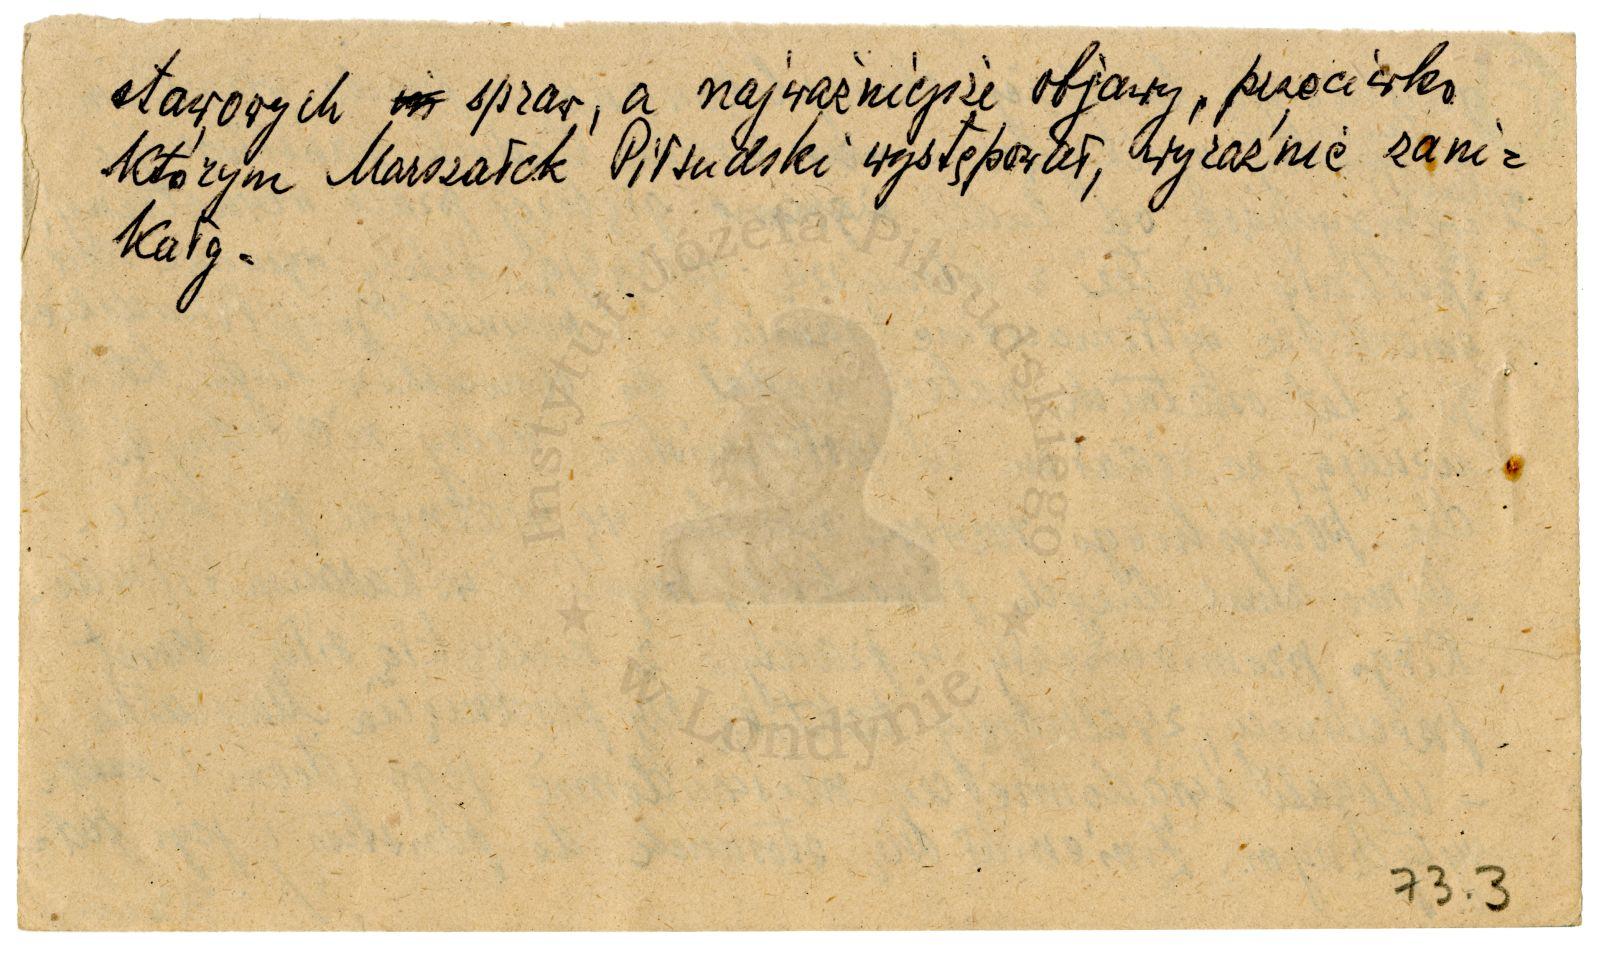 stawowych in spraw, a najważniejsze objawy, przeciwko
którym Marszałek Piłsudski występował, wyraźnie zani=
kały.
Instytut Józefa Piłsudskiego
w Londynie
73.3